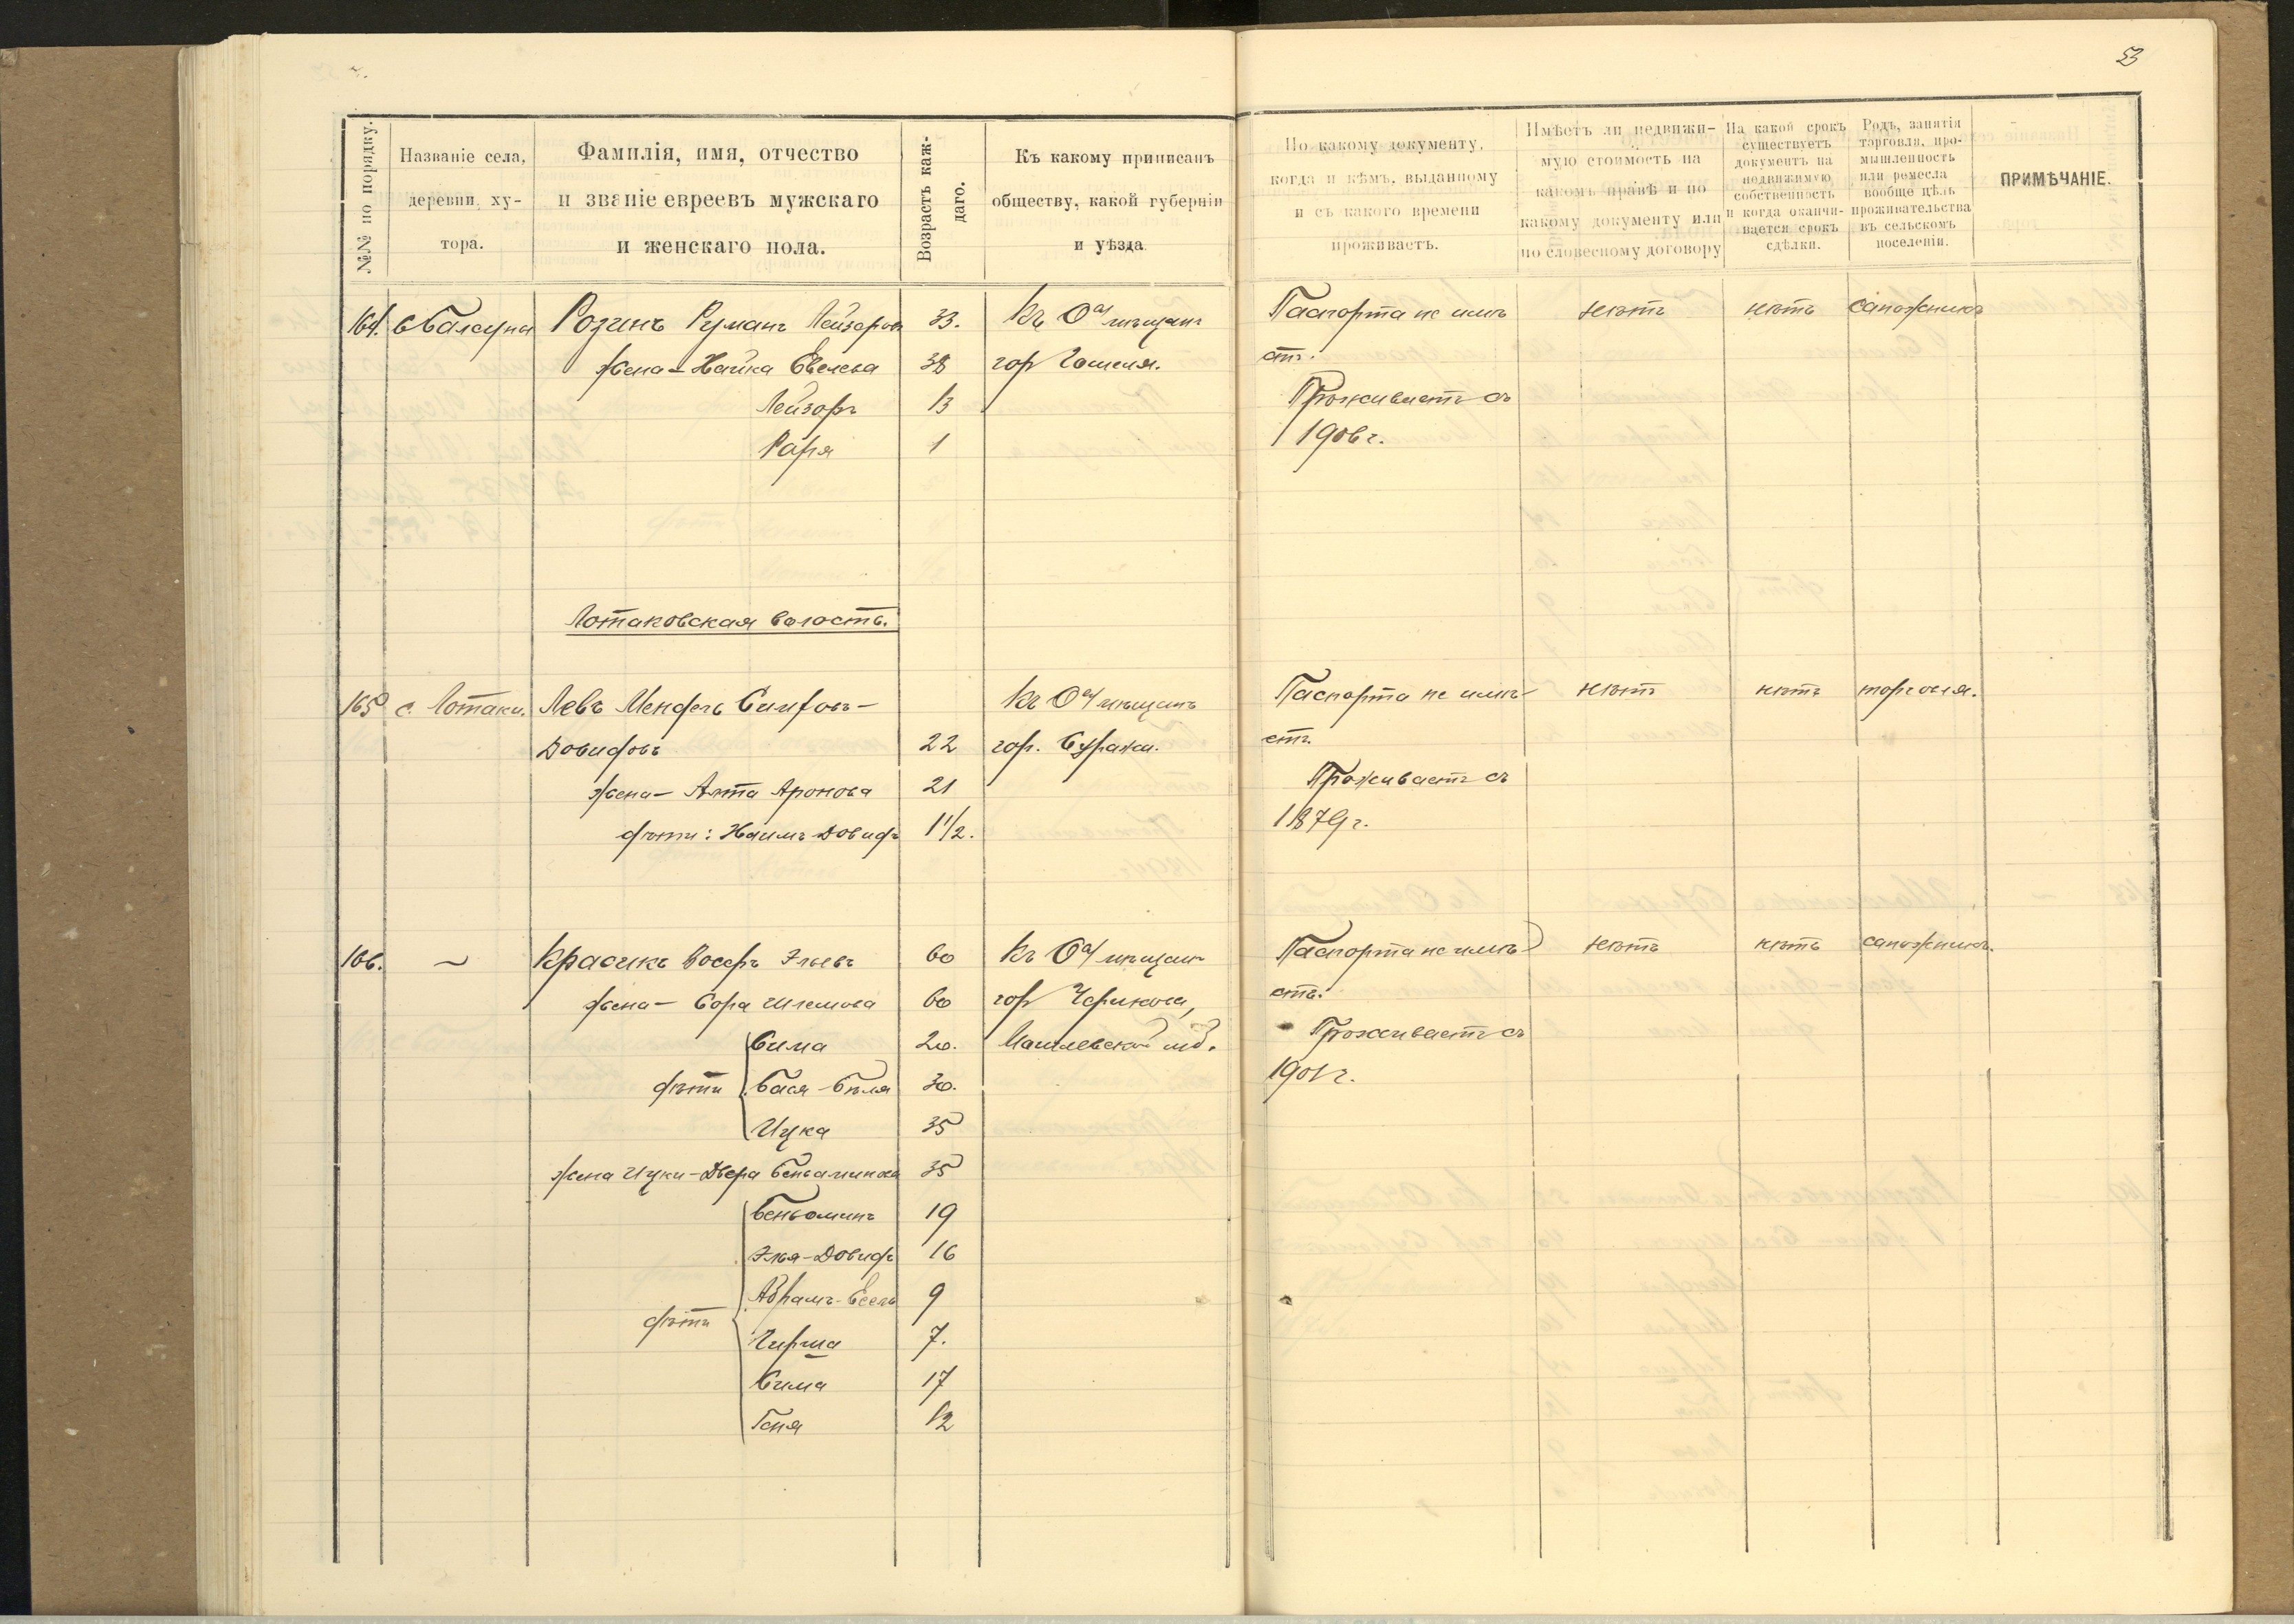 53
№№ по порядку.
Названіе села, деревни, ху-тора.
Фамилія, имя, отчество и званіе евреевъ мужскаго и женскаго пола.
Возрастъ каж-даго.
Къ какому приписанъ обществу, какой губерніи и уѣзда
По какому документу, когда и кѣмъ, выданному и съ какого времени проживаетъ.
Имѣетъ ли недвижи-мую стоимость на какомъ правѣ и по какому документу или по словесному договору
На какой срокъ существуетъ документъ на недвижимую собственность и когда оканчи-вается срокъ сдѣлки.
Родъ, занятія торговля, про-мышленность или ремесла вообще цѣль проживательства въ сельскомъ поселеніи.
ПРИМѢЧАНІЕ.
164. Розинъ Руманъ Лейзеровъ 33. Къ О2/ мѣщанъ Паспорта не имѣ нѣтъ нѣтъ сапожникъ
жена - Хайка Евелева 38 гор Гомеля. етъ.
Лейзоръ 13 Проживаетъ съ
Раря 1 1906 г.
Лотаковская волость.
165 с. Лотаки. Левъ Мендель Симховъ- Къ О2/ мѣщанъ Паспорта не имѣ- нѣтъ нѣтъ торговля.
Довидовъ 22 гор. Суража. етъ.
жена - Аронова 21 Проживаетъ съ
дѣти: Хаимъ-Довидъ 1 1/2. 1879 г.
166. — Красикъ Эльевъ 60 Къ О2/ мѣщанъ Паспорта не имѣ- нѣтъ нѣтъ сапожникъ.
жена - Сора Шлемова 60 гор Черикова, етъ.
Сима 20. Могилевской губ. Проживаетъ съ
дѣти Бася-Бѣля 30. 1901 г.
Ицка 35
жена Ицки - Двера Беньаминова 35
Беньоминъ 19
Элья-Довидъ 16
Абрамъ- 9
дѣти Гирша 7.
Сима 17
Геня 12